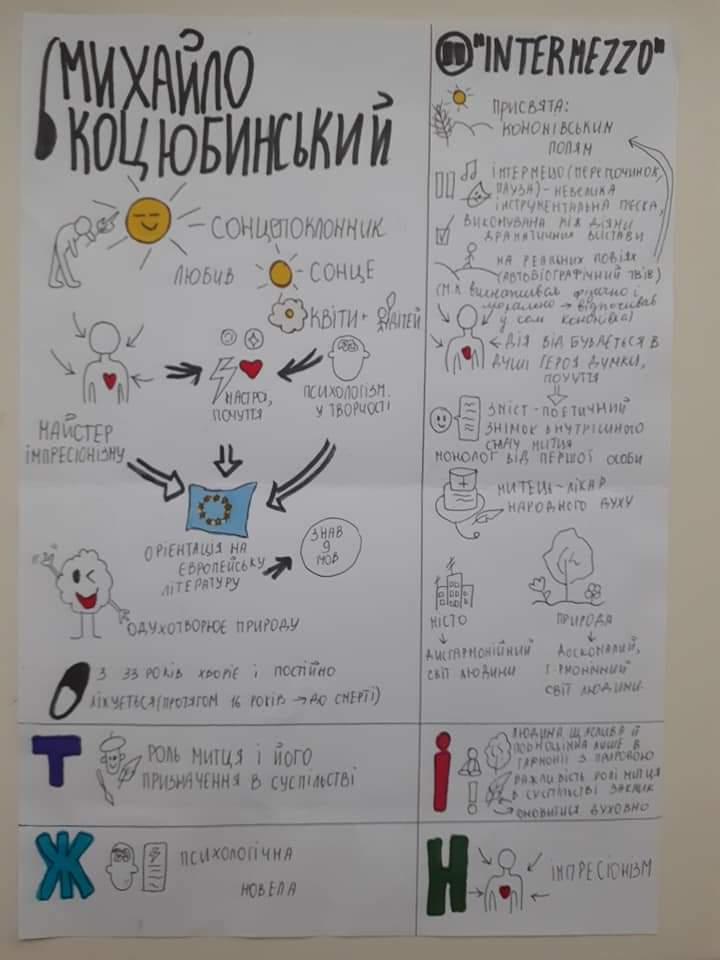 МИХАЙЛО
КОЦЮБИНСЬКИЙ
– СОНЦЕПОКЛОННИК
ЛЮБИВ – СОНЦЕ
КВІТИ + ДІТЕЙ
НАСТРОЇ,
ПОЧУТТЯ
ПСИХОЛОГІЗМ
У ТВОРЧОСТІ
МАЙСТЕР
ІМПРЕСІОНІЗМУ
ОРІЄНТАЦІЯ НА
ЄВРОПЕЙСЬКУ
ЛІТЕРАТУРУ
ЗНАВ
9
МОВ
ОДУХОТВОРЮЄ ПРИРОДУ
З 33 РОКІВ ХВОРІЄ І ПОСТІЙНО
ЛІКУЄТЬСЯ (ПРОТЯГОМ 16 РОКІВ → ДО СМЕРТІ)
"INTERMEZZO"
ПРИСВЯТА:
КОНОНІВСЬКИМ
ПОЛЯМ
ІНТЕРМЕЦО (ПЕРЕПОЧИНОК,
ПАУЗА) – НЕВЕЛИКА
ІНСТРУМЕНТАЛЬНА ПЄСКА,
ВИКОНУВАНА МІЖ ДІЯМИ
ДРАМАТИЧНИХ ВИСТАВИ
НА РЕАЛЬНИХ ПОДІЯХ
(АВТОБІОГРАФІЧНИЙ ТВІР)
(М.К. ВИСНАЖИВСЯ ФІЗИЧНО І
МОРАЛЬНО → ВІДПОЧИВАВ
У СЕЛІ КОНОНІВКА)
← ДІЯ ВІДБУВАЄТЬСЯ В
ДУШІ ГЕРОЯ ДУМКИ,
ПОЧУТТЯ
ЗМІСТ – ПОЕТИЧНИЙ
ЗНІМОК ВНУТРІШНОГО
СТАНУ МИТЦЯ
МОНОЛОГ ВІД ПЕРШОЇ ОСОБИ
МИТЕЦЬ – ЛІКАР
НАРОДНОГО ДУХУ
МІСТО
↓
ДИСГАРМОНІЙНИЙ
СВІТ ЛЮДИНИ
ПРИРОДА
↓
ДОСКОНАЛИЙ,
ГАРМОНІЧНИЙ
СВІТ ЛЮДИНИ
Т
РОЛЬ МИТЦЯ І ЙОГО
ПРИЗНАЧЕННЯ В СУСПІЛЬСТВІ
І
ЛЮДИНА ЩАСЛИВА Й
ПОВНОЦІННА ЛИШЕ В
ГАРМОНІЇ З ПРИРОДОЮ
ВАЖЛИВІСТЬ РОЛІ МИТЦЯ
В СУСПІЛЬСТВІ ЗАКЛИК
→ ОНОВИТИСЯ ДУХОВНО
Ж
ПСИХОЛОГІЧНА
НОВЕЛА
Н
ІМПРЕСІОНІЗМ